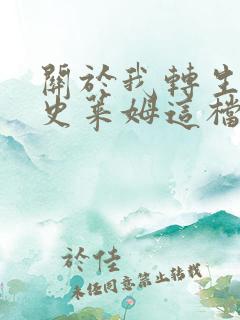 關於我轉生
史萊姆這檔
於佳
未任同意禁止轉載